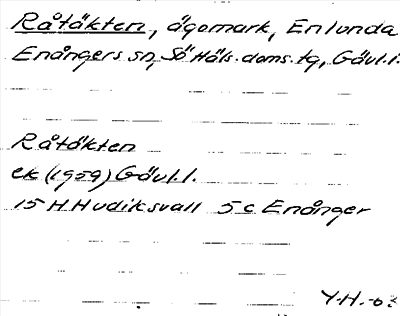 Råtäkten, ägomark, Enlunda
Enångers sn, Sö Häls. doms. tg, Gävl.l.
Råtäkten
ek (1959) Gävl.l.
15 H Hudiksvall 5c Enånger
Y.H. -63